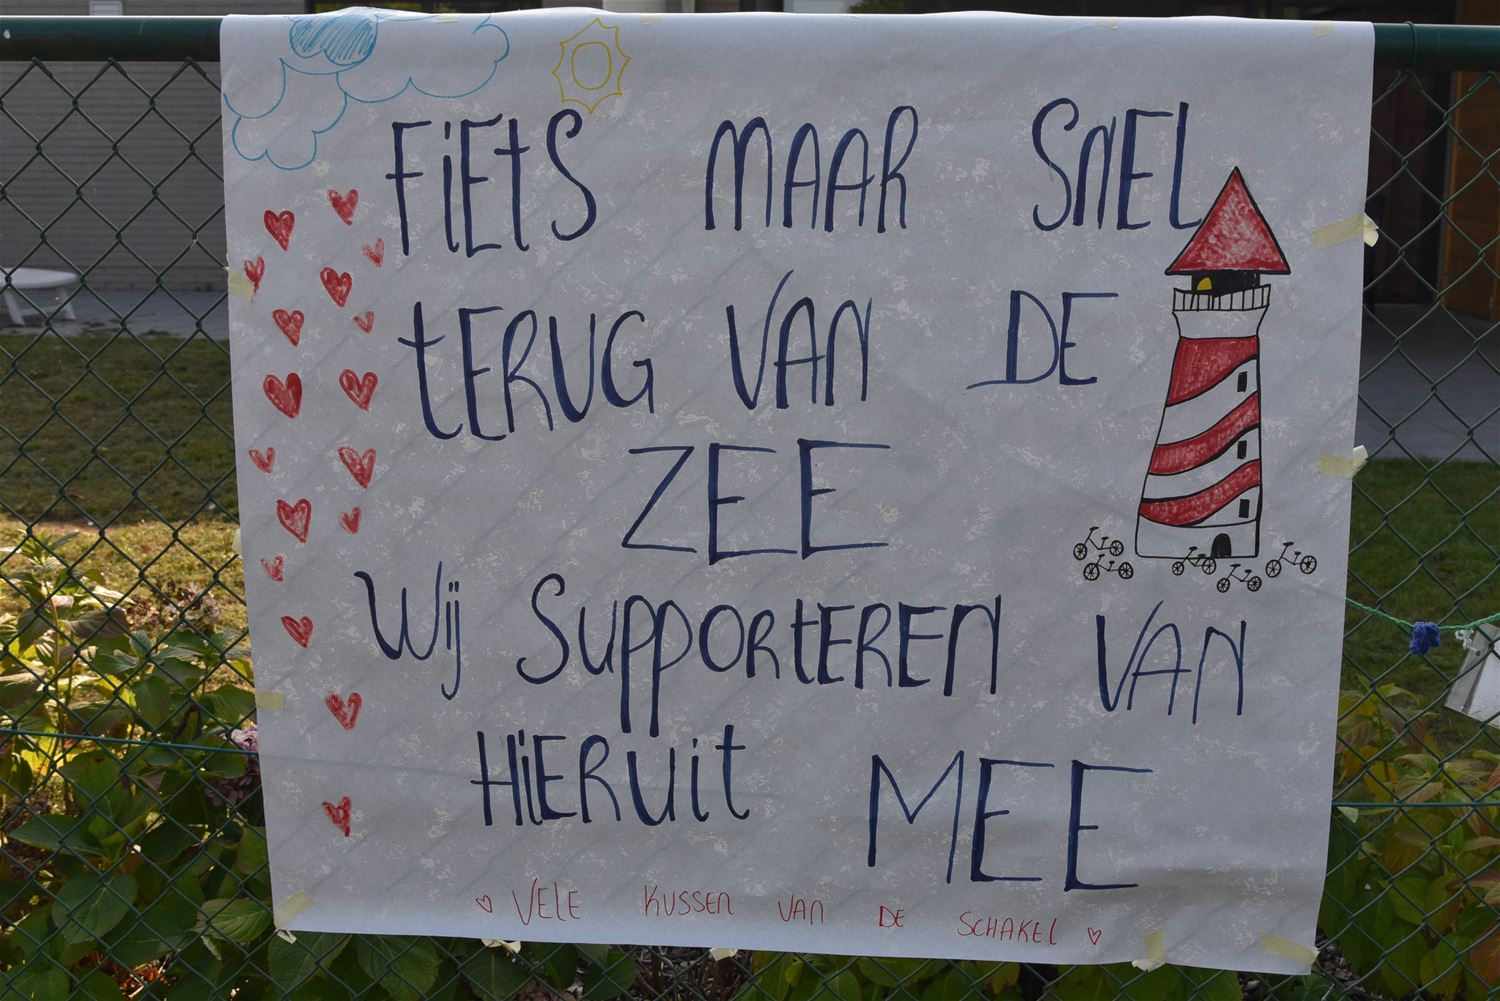 FiEtS MAAR SNEL
tERUG VAN DE
ZEE
Wij SuppORtEREN VAN
HiERuit MEE
VELE KUSSEN VAN DE SCHAKEL